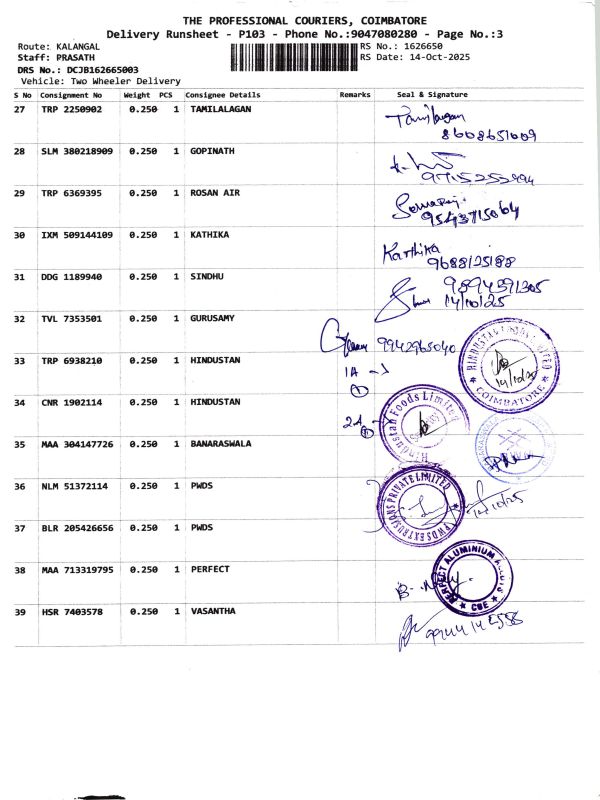 THE PROFESSIONAL COURIERS, COIMBATORE
Delivery Runsheet - P103 - Phone No.:9047080280 - Page No.:3
Route: KALANGAL RS No.: 1626650
Staff: PRASATH RS Date: 14-Oct-2025
DRS No.: DCJB162665003
Vehicle: Two Wheeler Delivery
S No Consignment No Weight PCS Consignee Details Remarks Seal & Signature
27 TRP 2250902 0.250 1 TAMILALAGAN Tamilalagan
8608651009
28 SLM 380218909 0.250 1 GOPINATH
29 TRP 6369395 0.250 1 ROSAN AIR
9543715064
30 IXM 509144109 0.250 1 KATHIKA Karthika
9688125188
31 DDG 1189940 0.250 1 SINDHU 9894391205
14/10/25
32 TVL 7353501 0.250 1 GURUSAMY 9942965040
33 TRP 6938210 0.250 1 HINDUSTAN 1A
1
HINDUSTAN FOODS LIMITED
14/10/25
COIMBATORE
34 CNR 1902114 0.250 1 HINDUSTAN 2A
Hindustan Foods Limited
35 MAA 304147726 0.250 1 BANARASWALA
36 NLM 51372114 0.250 1 PWDS
PWDS EXTRUSIONS PRIVATE LIMITED
14/10/25
37 BLR 205426656 0.250 1 PWDS
38 MAA 713319795 0.250 1 PERFECT
PERFECT ALUMINIUM ALLOYS
CBE
39 HSR 7403578 0.250 1 VASANTHA
9944142558